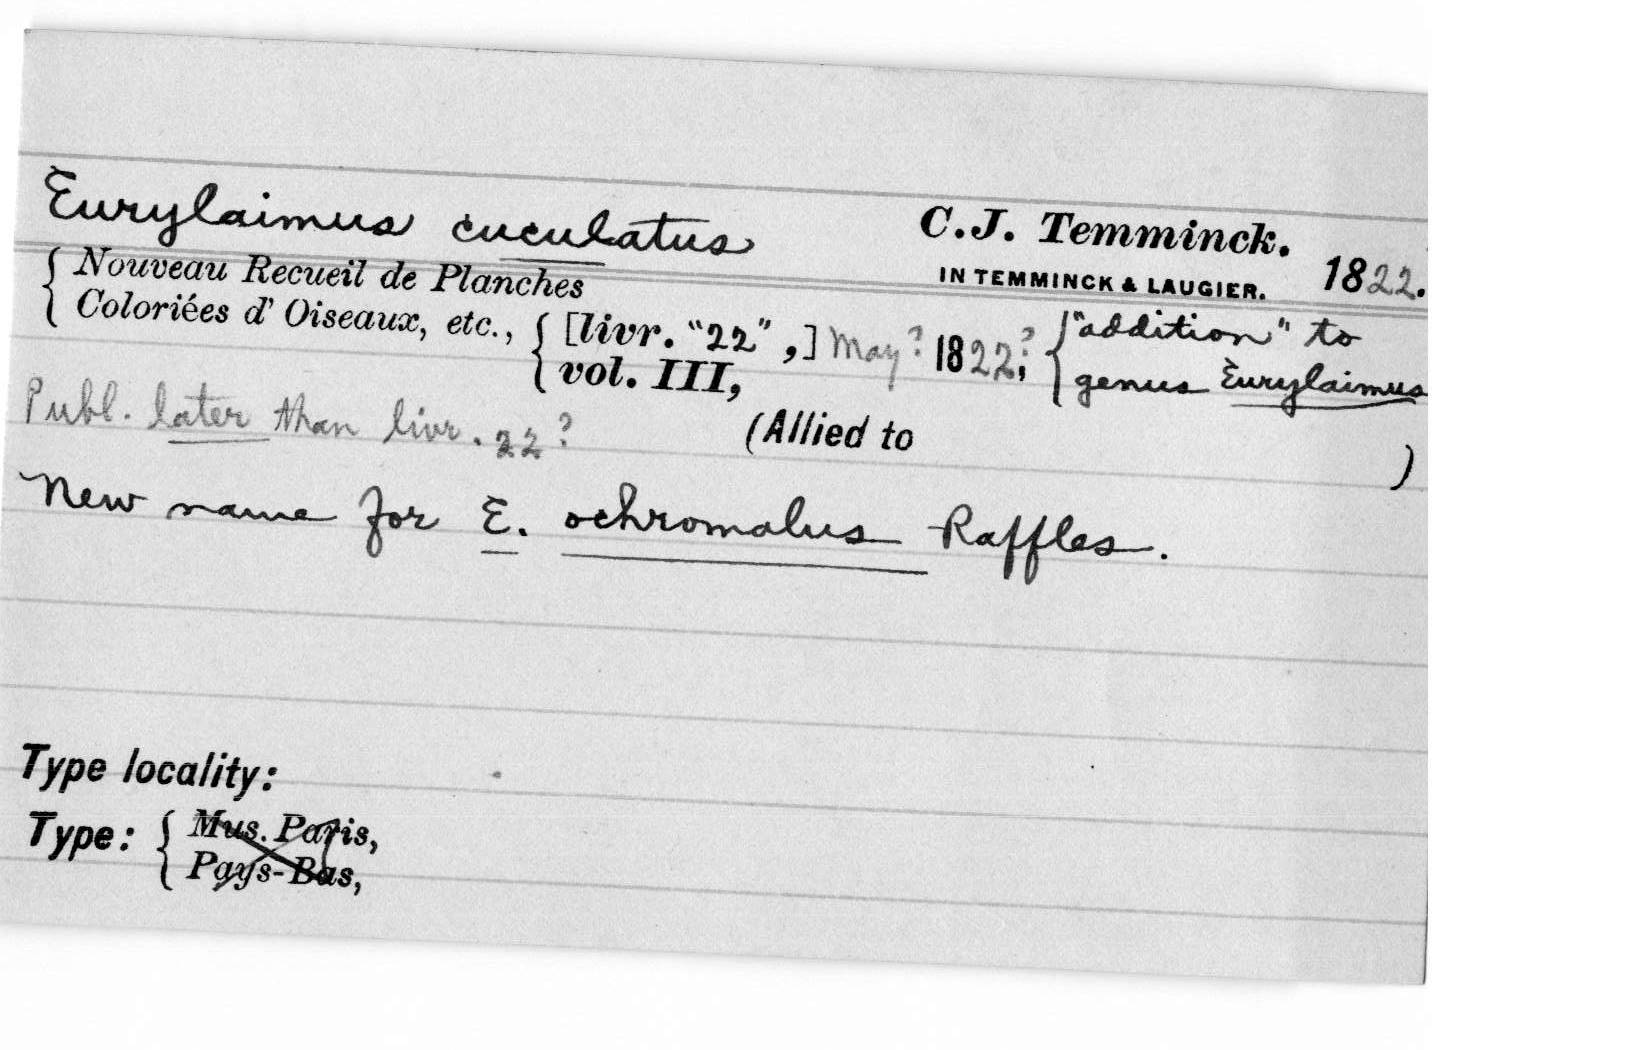 Eurylaimus cuculatus C.J. Temminck.
IN TEMMINCK & LAUGIER. 1822.
{ Nouveau Recueil de Planches
Coloriées d' Oiseaux, etc., { [livr. "22",] May? 1822?; { "addition" to
vol. III, genus Eurylaimus
Publ. later than livr. 22? (Allied to )
New name for E. ochromalus Raffles.
Type locality:
Type: { Mus. Paris,
Pays-Bas,